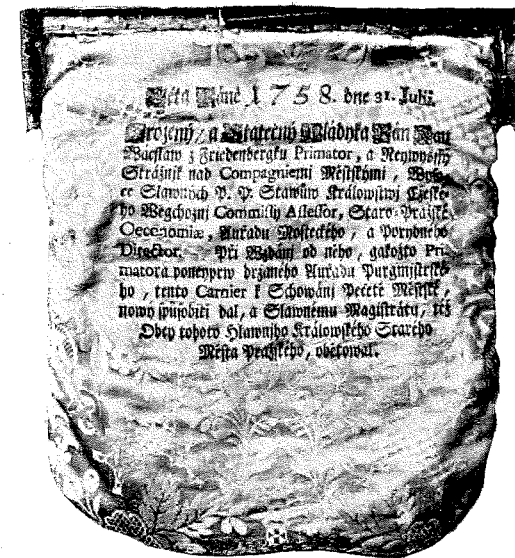 Léta Páně 1758. dne 31. Julij.
Urozený/ a Statečný Wládyka Pán Pan
Wacslaw z Friedenbergku Primator, a Neywyšssý
Strážnjk nad Compagniemi Městskými,
ce Slawných P. P. Stawůw Králowstwj Cžeské-
ho Weychoznj Commissy Assessor, Staro-Pražské
Oeconomiæ, Auřadu Mosteckého, a Porybného
Director. Při Wzdánj od něho, gakožto Pri-
matora ponejprw držaného Auřadu Purgmistrské-
ho, tento Carnier k Schowánj Pečetě Městské,
nowý způsobiti dal, a Slawnému Magistrátu, též
Obcy tohoto Hlawnjho Králowského Starého
Města Pražského, obětowal.